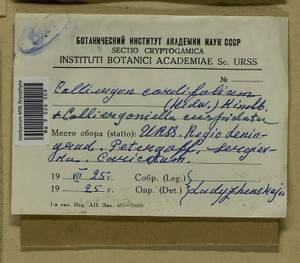 БОТАНИЧЕСКИЙ ИНСТИТУТ АКАДЕМИИ НАУК СССР
SECTIO CRYPTOGAMICA
INSTITUTI BOTANICI ACADEMIAE Sc. URSS
Calliergon cordifolium
(Hedw.) Kindb.
+ Calliergoniella cuspidata
Место сбора (statio): URSS. Regio Lenin-
grad. Peterhoff. Sergiev-
ka. Caricetum.
19 VII 25 г. Собр. (Leg.)
19 25 г. Опр. (Det.) Ladyzhenskaja
1-я тип. Изд. АН. Зак. 657—25000
Herbarium MW, Bryophyta